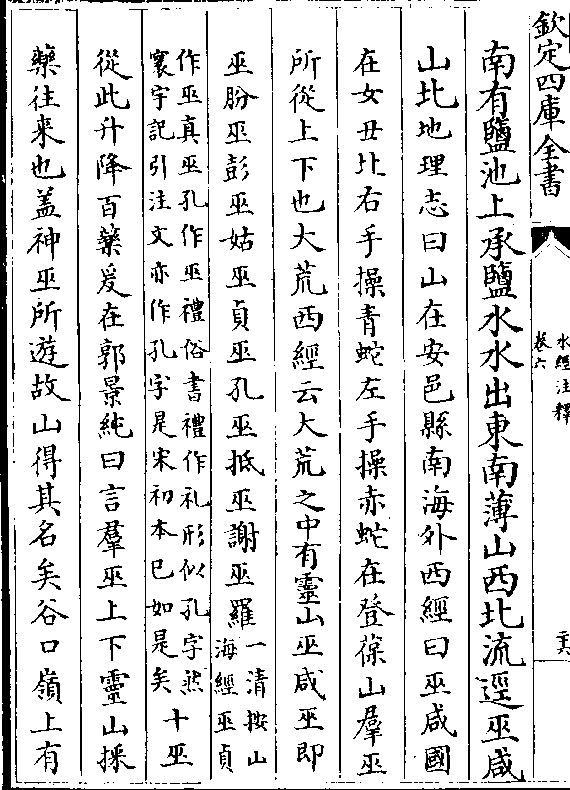 欽定四庫全書
水經注釋
卷六
二十六
南有鹽池上承鹽水水出東南薄山西北流逕巫咸
山北地理志曰山在安邑縣南海外西經曰巫咸國
在女丑北右手操青蛇左手操赤蛇在登葆山羣巫
所從上下也大荒西經云大荒之中有靈山巫咸巫即
巫肦巫彭巫姑巫貞巫孔巫抵巫謝巫羅
一清按山
海經巫貞
作巫真巫孔作巫禮俗書禮作礼形似孔字然
寰宇記引注文亦作孔字是宋初本已如是矣
十巫
從此升降百藥爰在郭景純曰言羣巫上下靈山採
藥往来也盖神巫所遊故山得其名矣谷口嶺上有